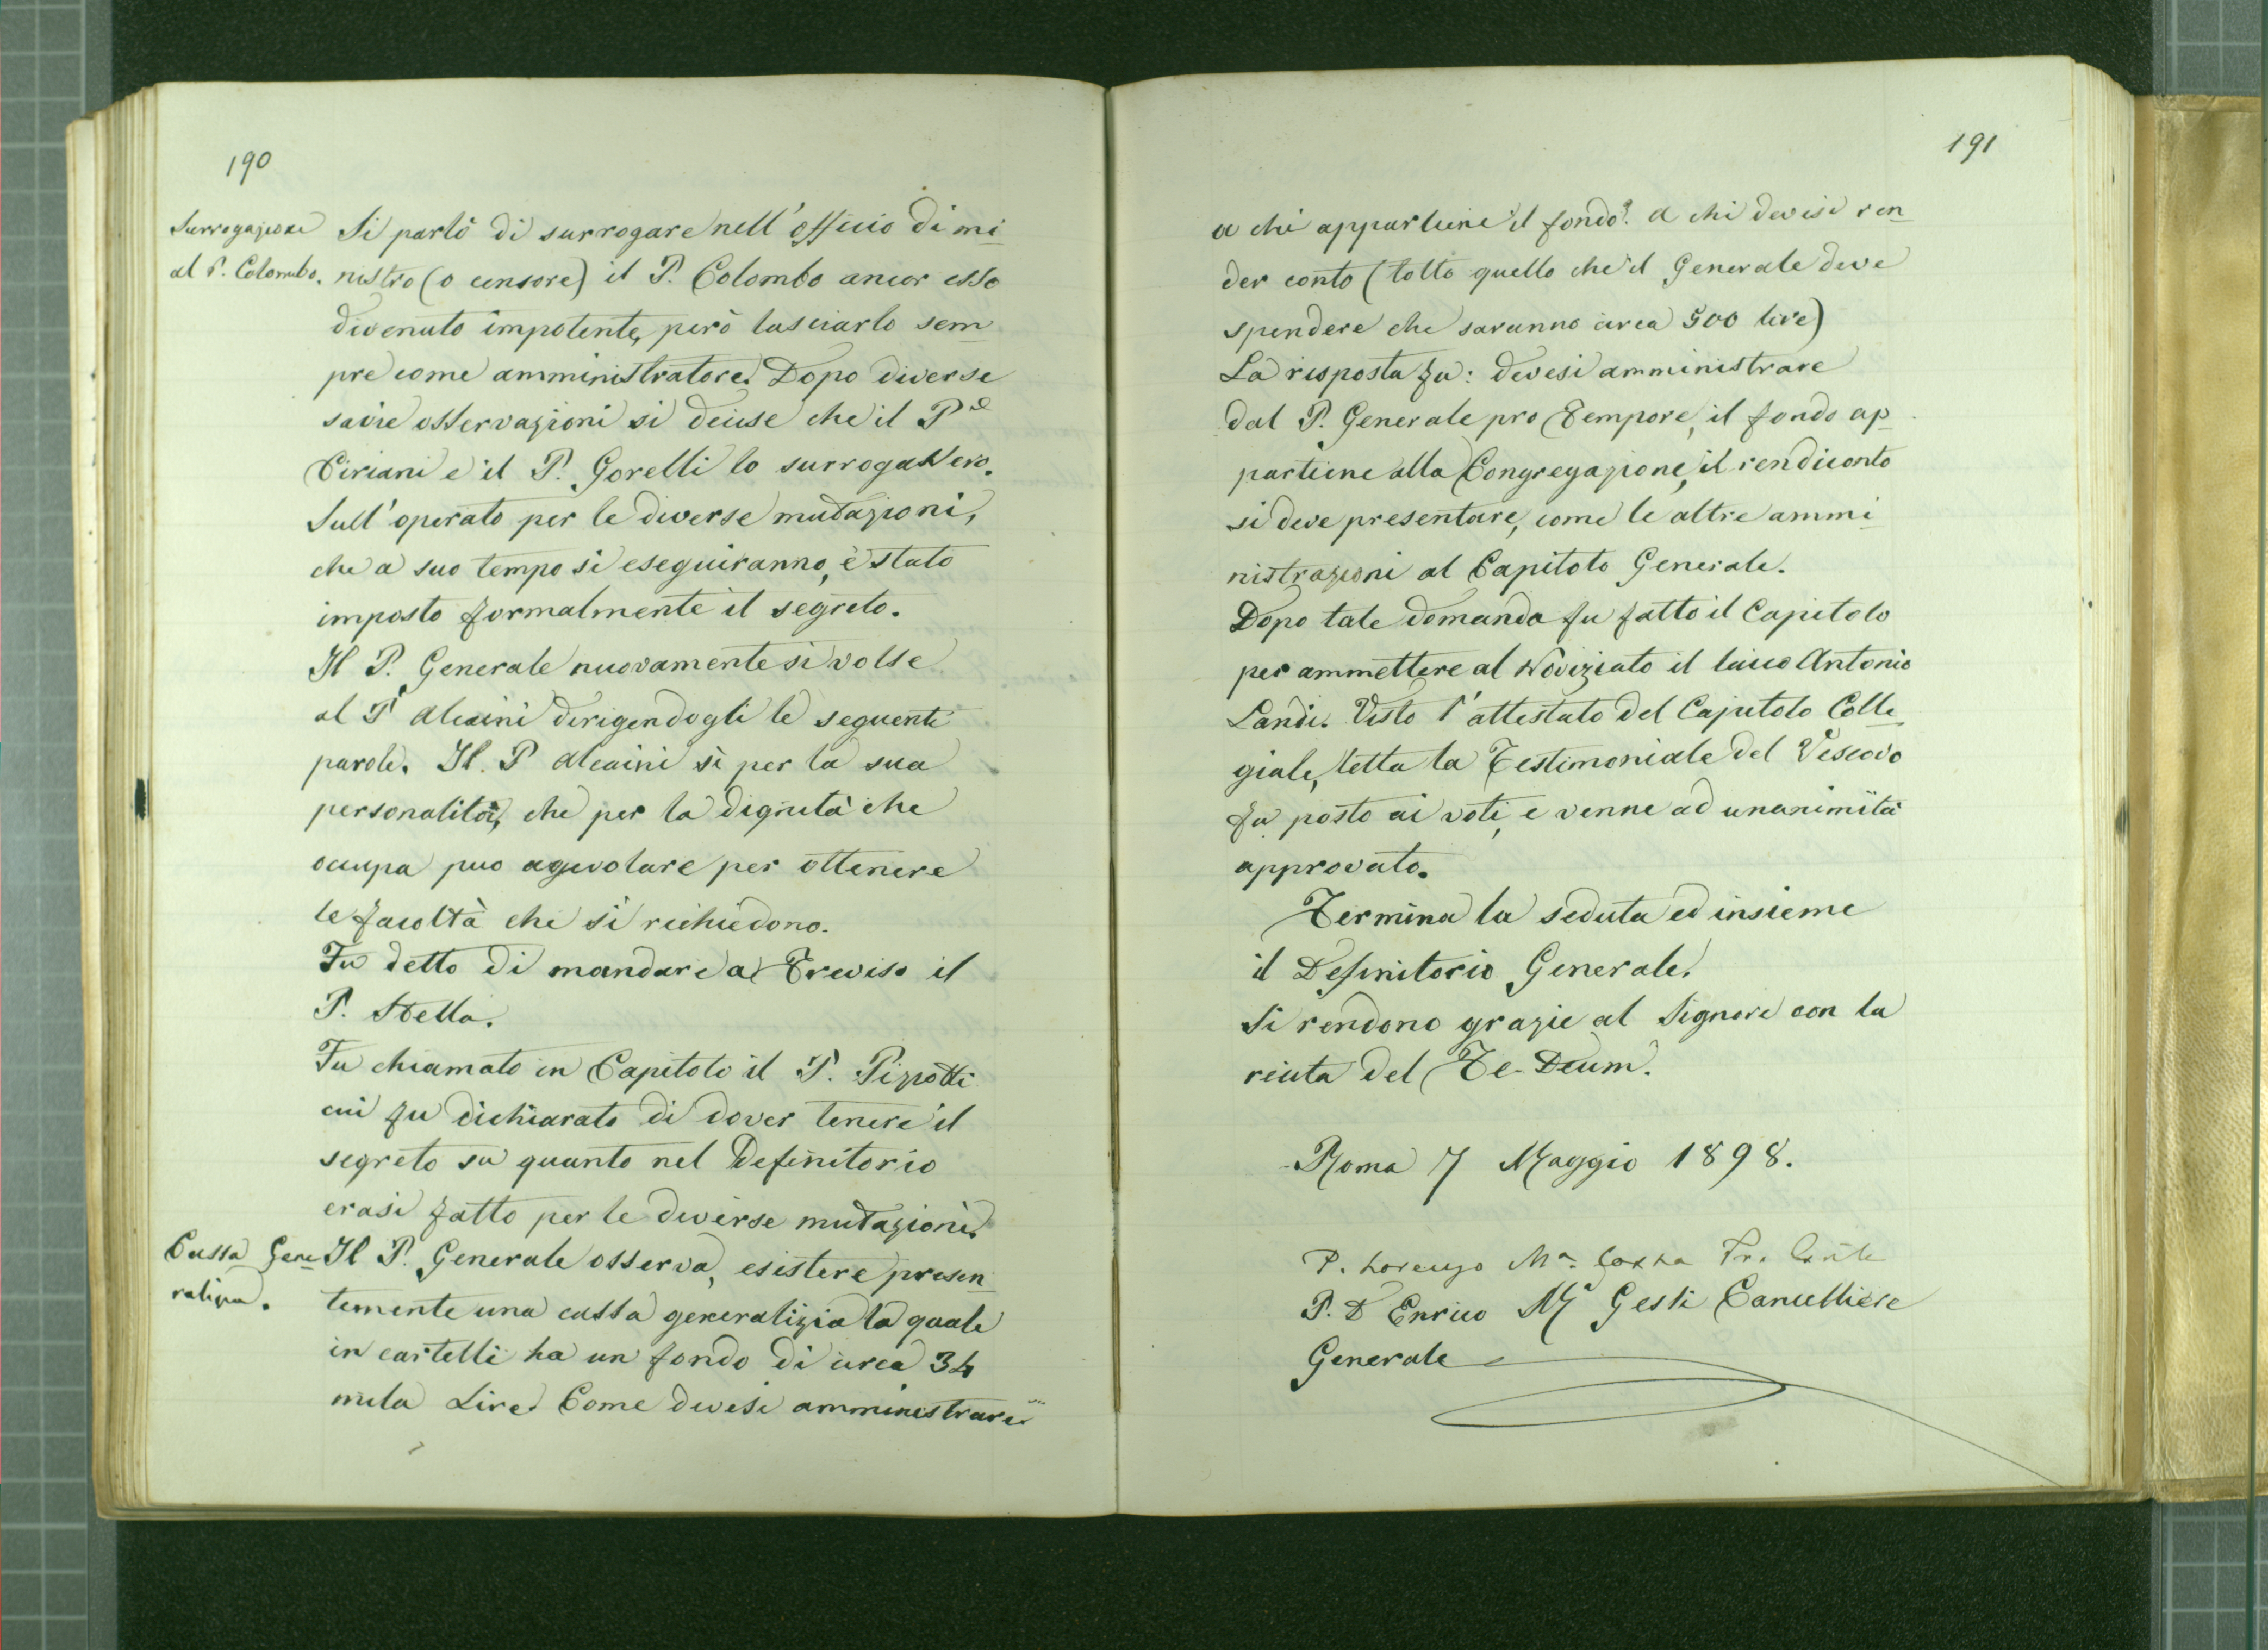 190
Surrogazione
al P. Colombo.
Si parlò di surrogare nell'officio di mi
nistro (o censore) il P. Colombo ancor esso
divenuto impotente, però lasciarlo sem
pre come amministratore. Dopo diverse
savie osservazioni si decise che il P.e
Ciriani e il P. Gorelli lo surrogassero.
Sull'operato per le diverse mutazioni,
che a suo tempo si eseguiranno, è stato
imposto formalmente il segreto.
Il P. Generale nuovamente si volse
al P Alcaini dirigendogli le seguenti
parole. Il. P Alcaini sì per la sua
personalità, che per la dignità che
occupa puo agevolare per ottenere
le facoltà che si richiedono.
Fu detto di mandare a Treviso il
P. Stella.
Fu chiamato in Capitolo il P. Pizzotti
cui fu dichiarato di dover tenere il
segreto su quanto nel Definitorio
erasi fatto per le diverse mutazioni.
Cassa Gene
ralizia.
Il P. Generale osserva, esistere presen
temente una cassa generalizia la quale
in cartelle ha un fondo di circa 34
mila Lire. Come devesi amministrare
191
a chi appartiene il fondo? a chi devesi ren
der conto (tolto quello che il Generale deve
spendere che saranno circa 500 lire)
La risposta fu: devesi amministrare
dal P. Generale pro Tempore, il fondo ap
partiene alla Congregazione, il rendiconto
si deve presentare, come le altre ammi
nistrazioni al Capitolo Generale.
Dopo tale domanda fu fatto il Capitolo
per ammettere al Noviziato il laico Antonio
Landi. Visto l'attestato del Capitolo Colle
giale, letta la Testimoniale del Vescovo
fu posto ai voti, e venne ad unanimità
approvato.
Termina la seduta ed insieme
il Definitorio Generale.
Si rendono grazie al Signore con la
recita del Te-Deum.
Roma 7 Maggio 1898.
P. Lorenzo M.a Cossa
P. D Enrico M.a Gessi Cancelliere
Generale